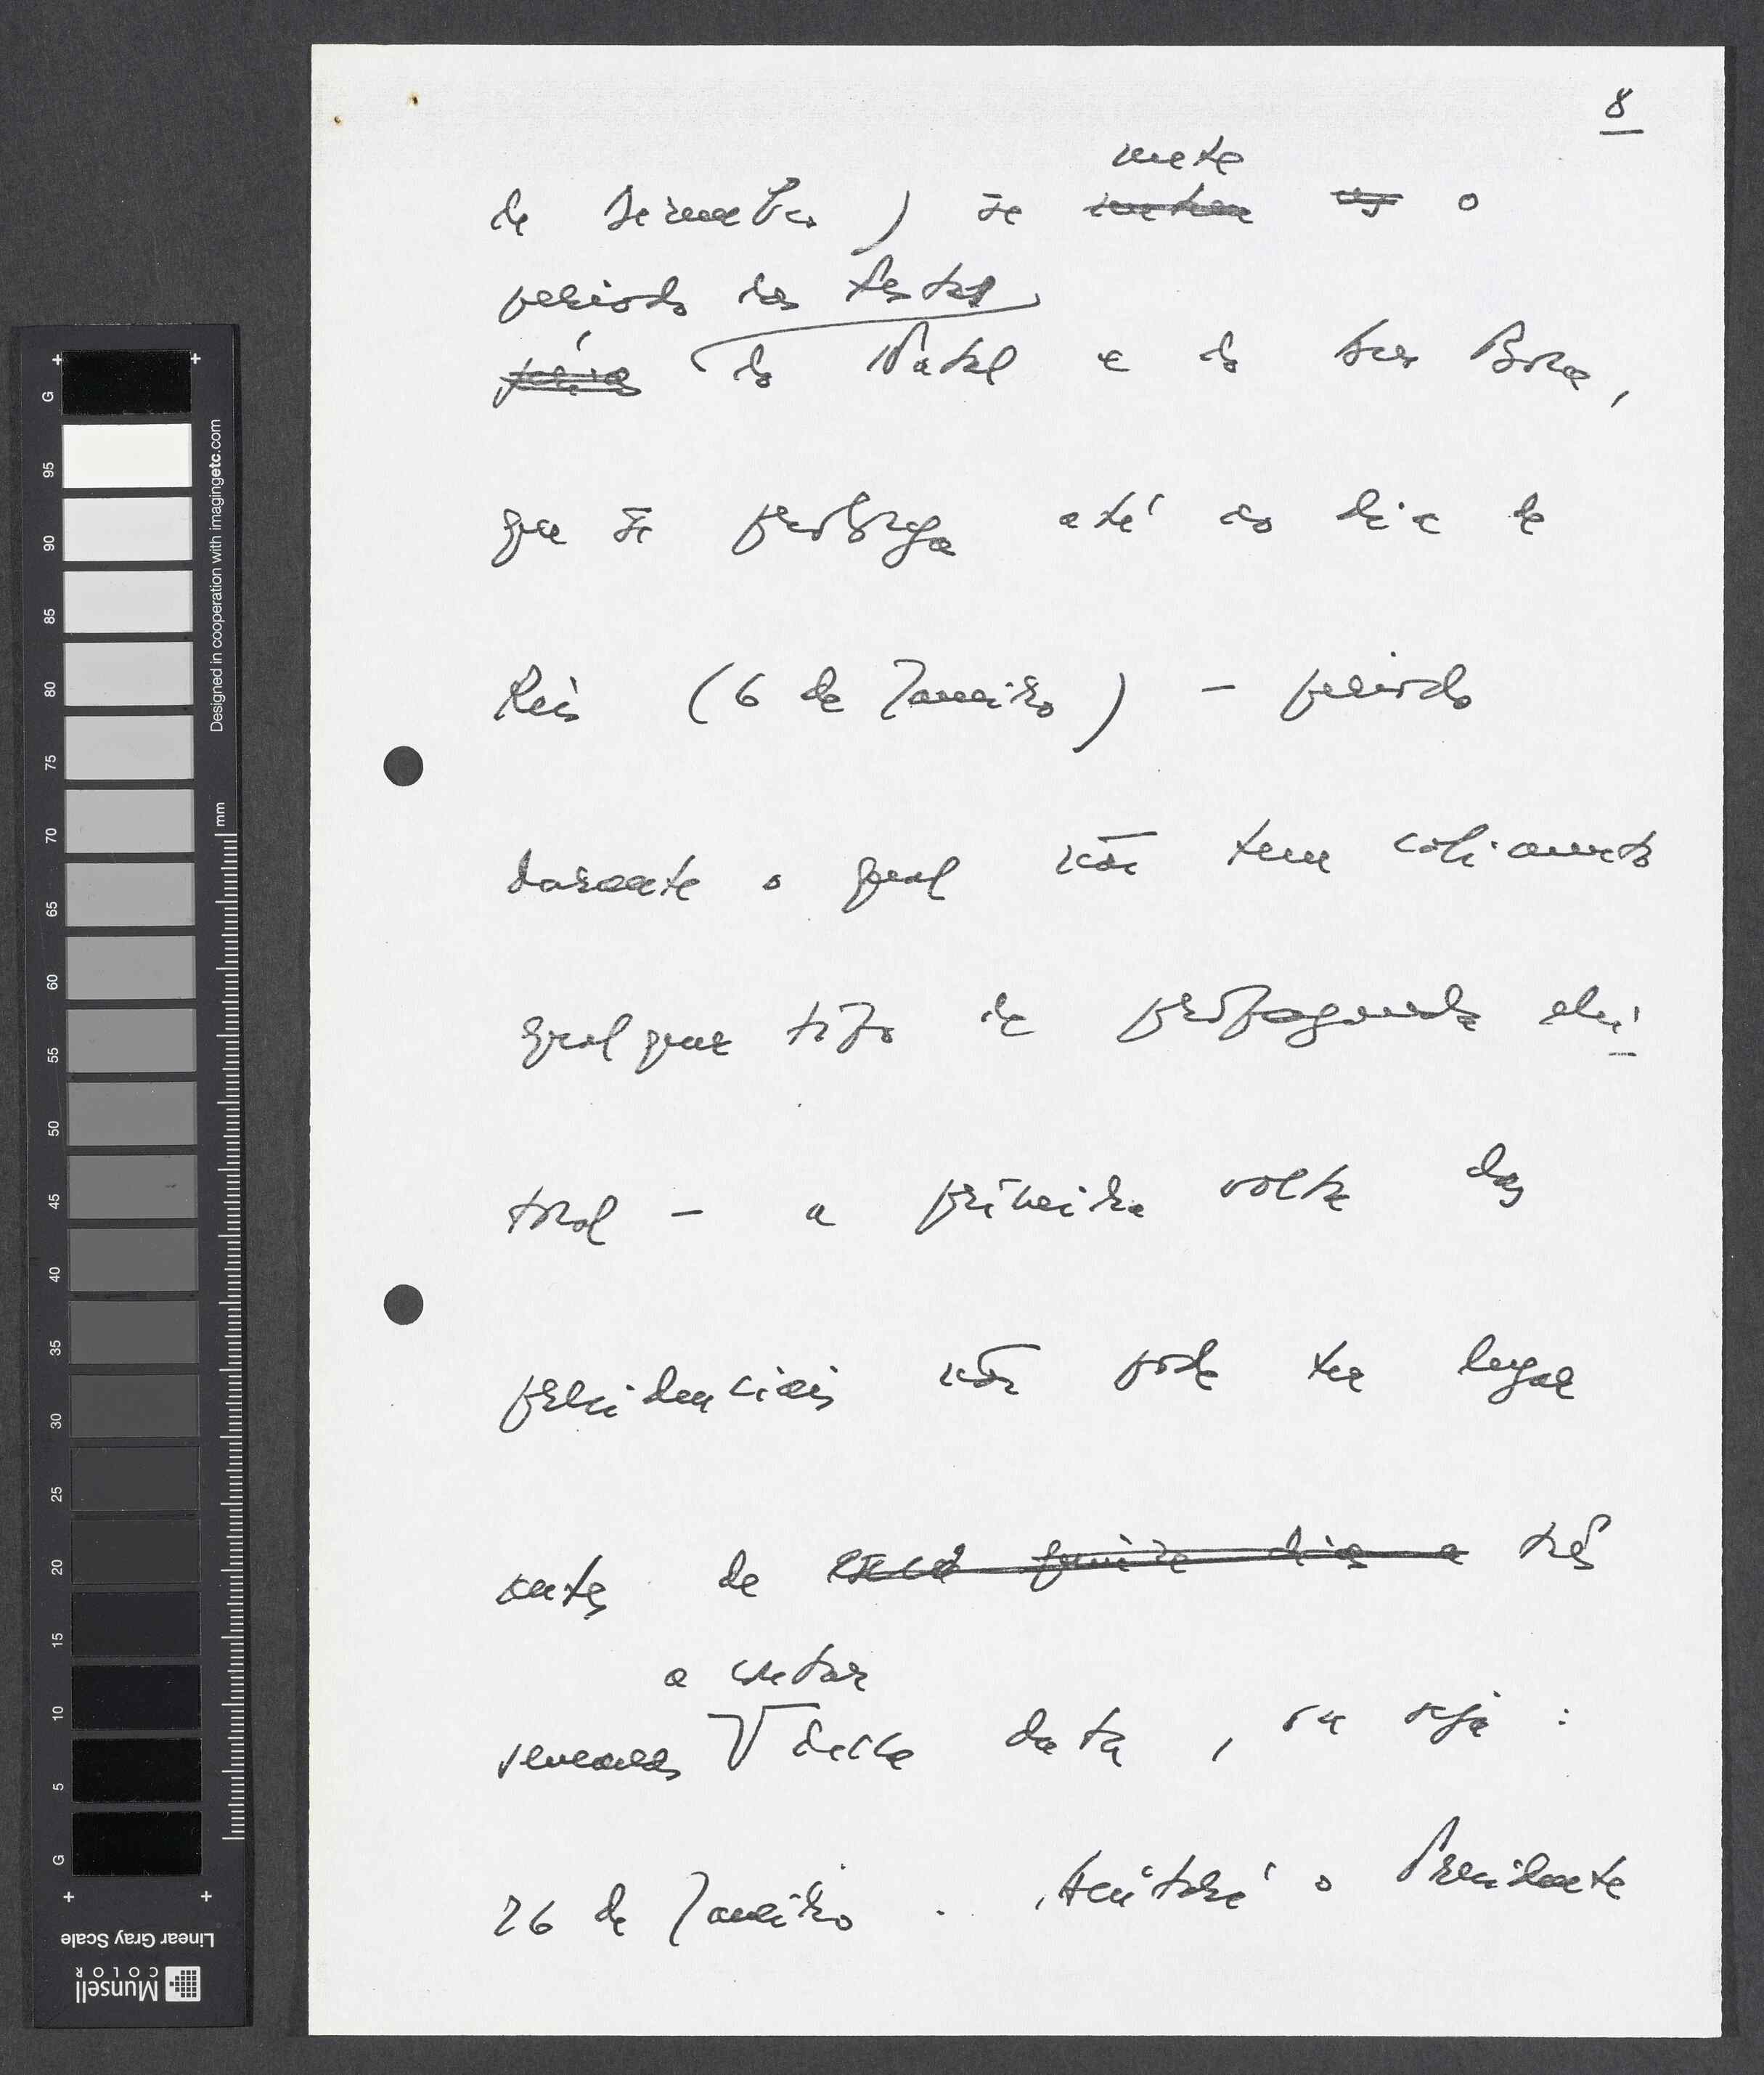 8
mete
de Dezembro) se metem as o
período das festas
férias do Natal e do Ano Bom,
que se prolonga até ao dia de
Reis (6 de Janeiro) – período
durante o qual não tem cabimento
qualquer tipo de propaganda elei
toral – a primeira volta das
presidenciais não pode ter lugar
antes de quinze dias a três
a contar
semanas dessa data, ou seja:
26 de Janeiro. o Presidente
G 95 90 85 80 75 70 65 60 55 50 45 40 35 30 25 20 15 10 5 G
Designed in cooperation with imagingetc.com
mm
Linear Gray Scale
Munsell
COLOR